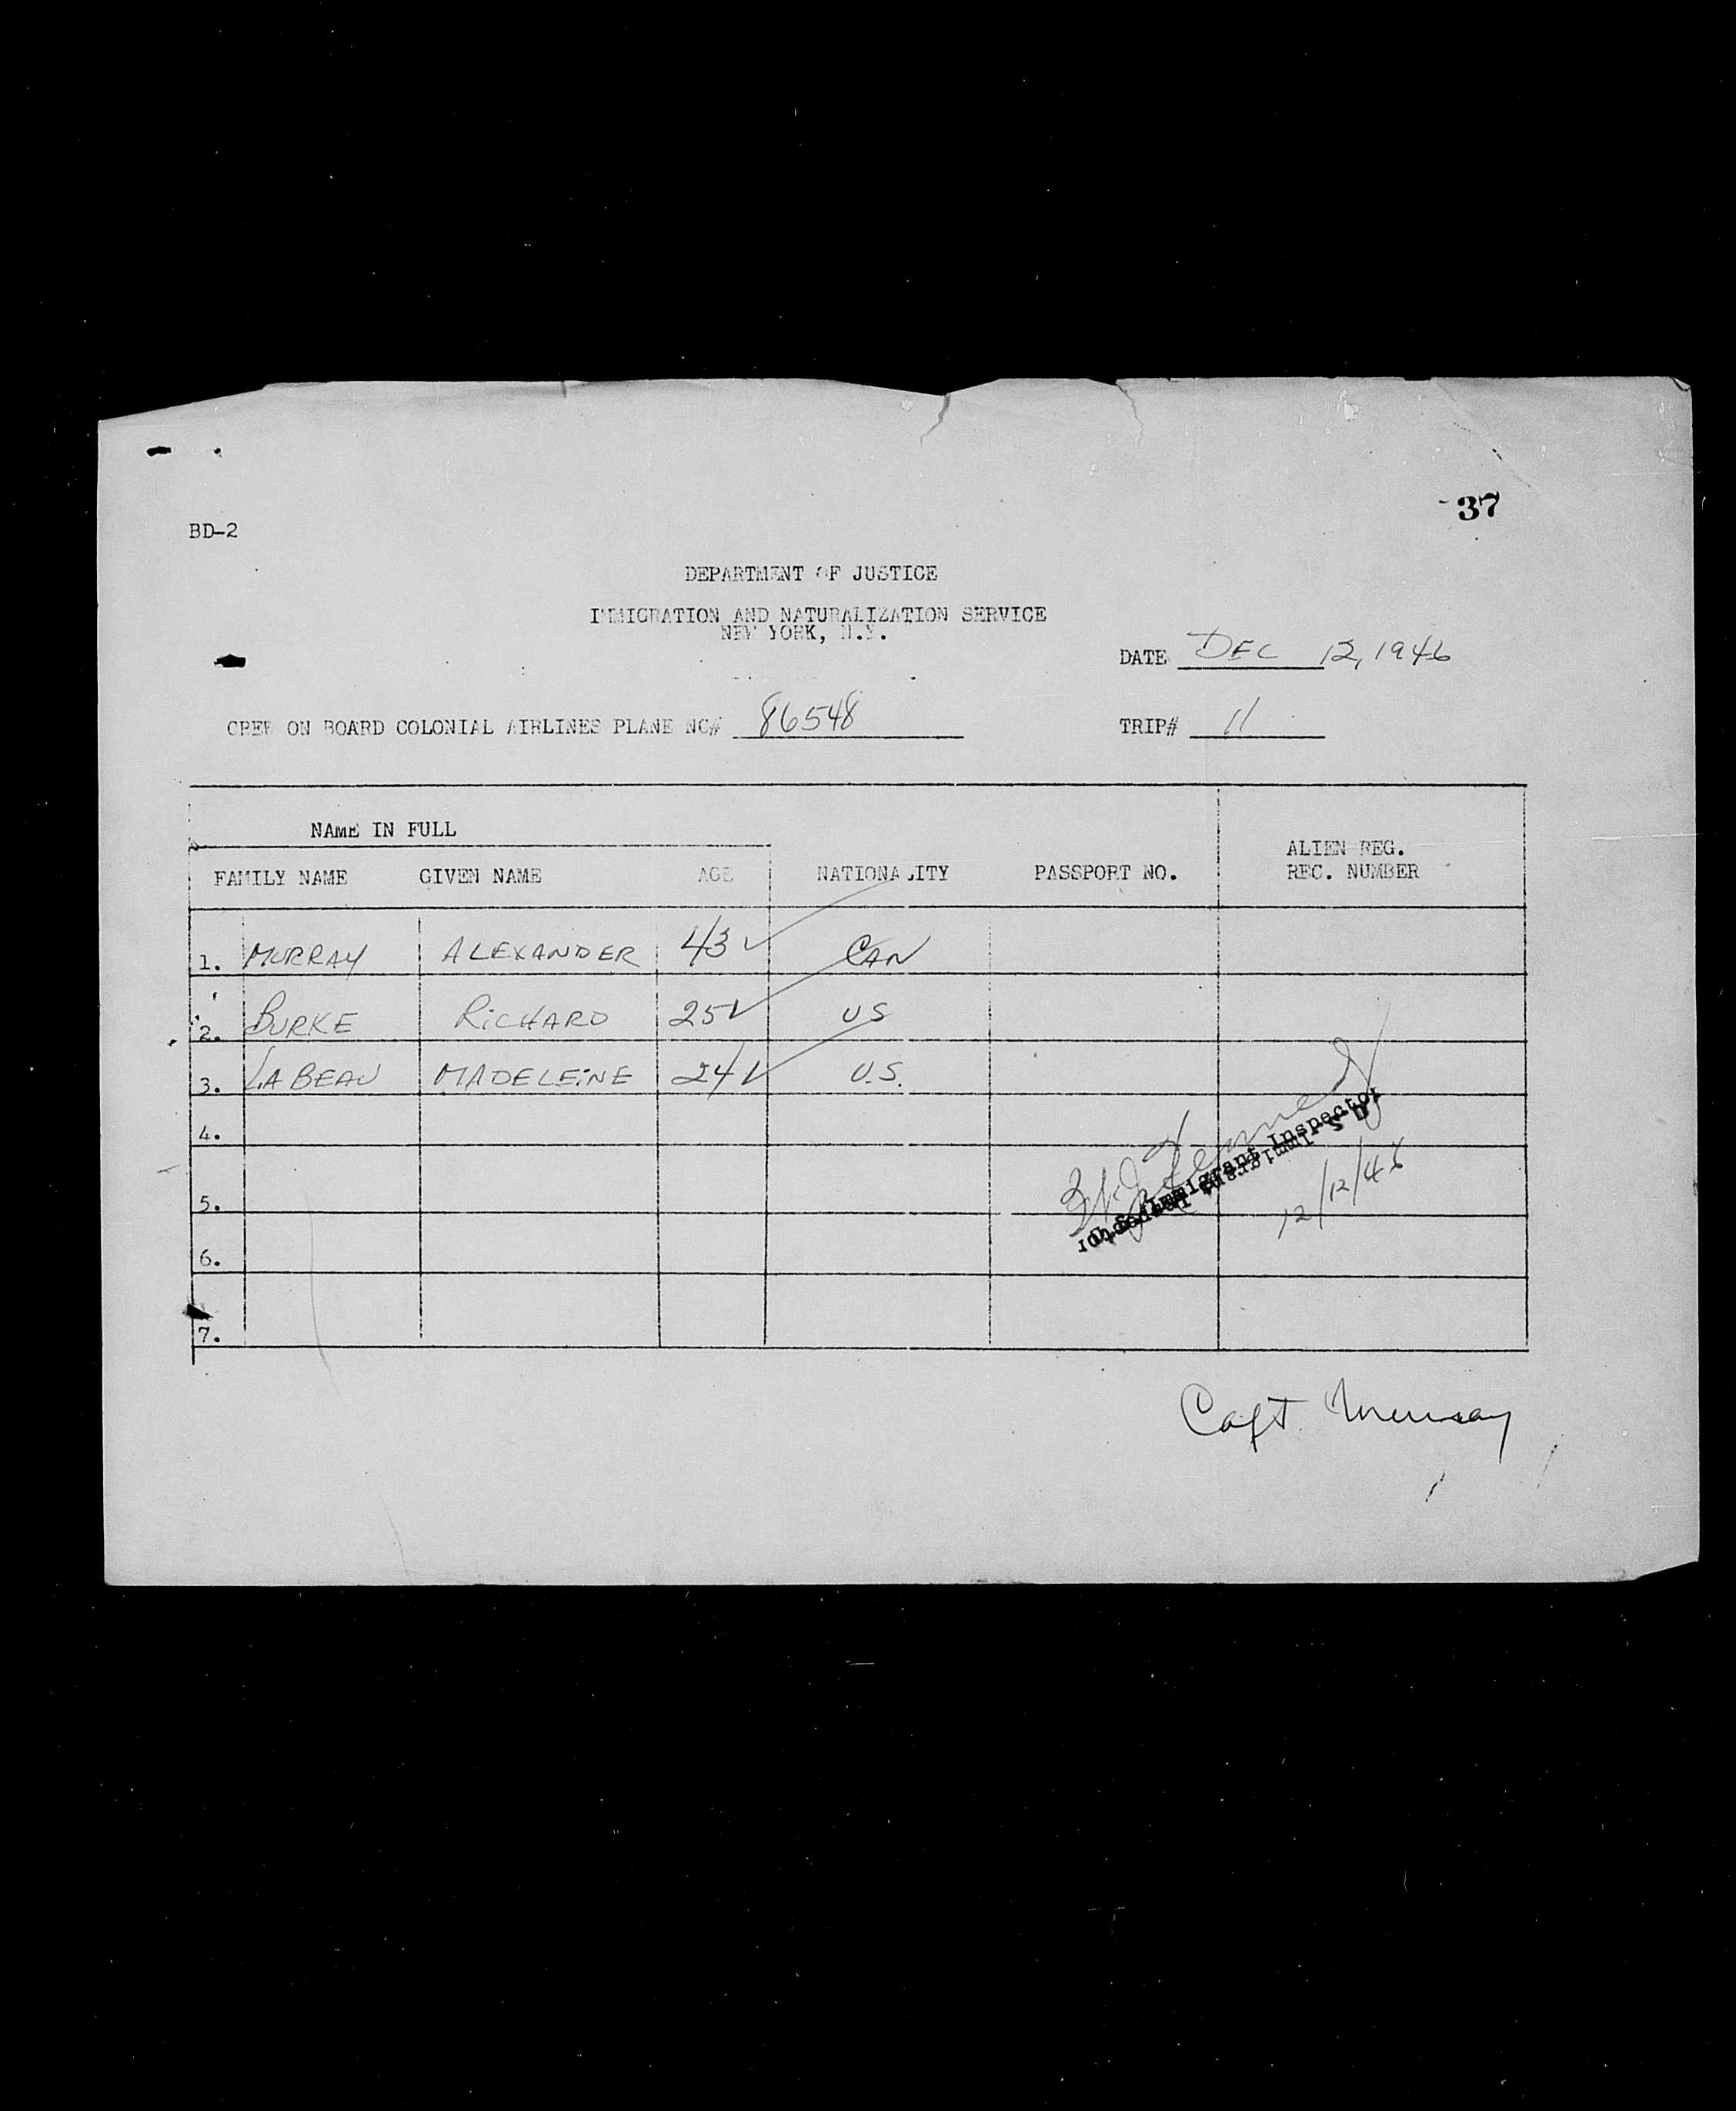 37
BD-2
DEPARTMENT OF JUSTICE
IMMIGRATION AND NATURALIZATION SERVICE
NEW YORK, N.Y.
DATE DEC 12, 1946
CREW ON BOARD COLONIAL AIRLINES PLANE NC# 86548 TRIP# 11
NAME IN FULL
FAMILY NAME GIVEN NAME AGE NATIONALITY PASSPORT NO. ALIEN REG. REC. NUMBER
1. MURRAY ALEXANDER 43 ✓ CAN
2. BURKE RICHARD 25 ✓ US
3. LA BEAU MADELEINE 24 ✓ U.S.
4.
5.
6.
7.
Immigrant Inspector
12/12/46
Capt. Murray